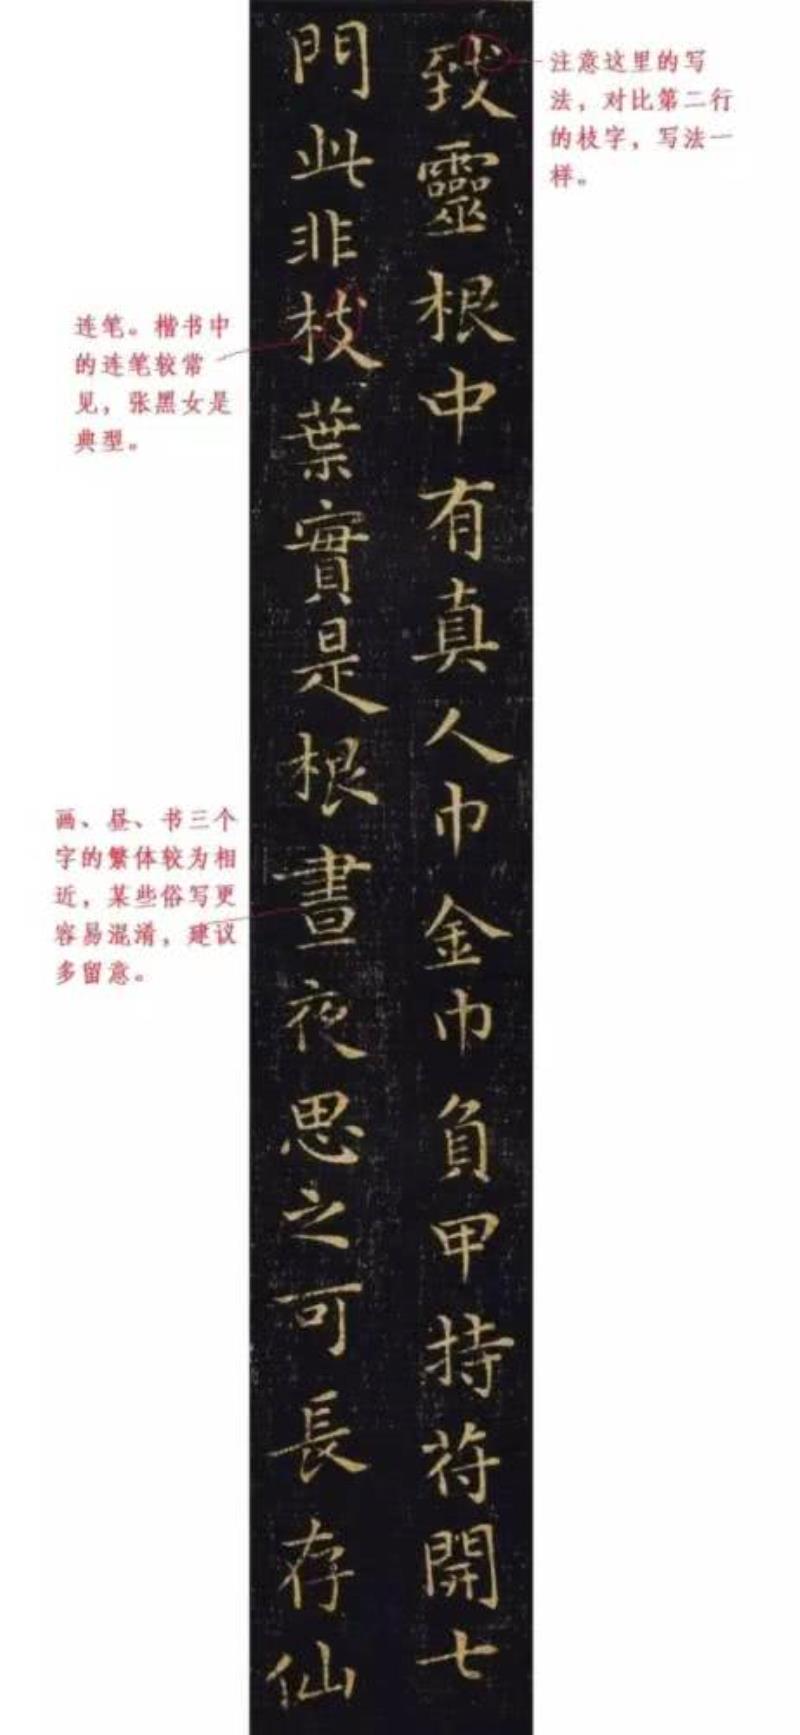 致靈根中有真人巾金巾負甲持苻開七
門此非枝葉實是根晝夜思之可長存仙
注意这里的写
法，对比第二行
的枝字，写法一
样。
连笔。楷书中
的连笔较常
见，张黑女是
典型。
画、昼、书三个
字的繁体较为相
近，某些俗写更
容易混淆，建议
多留意。